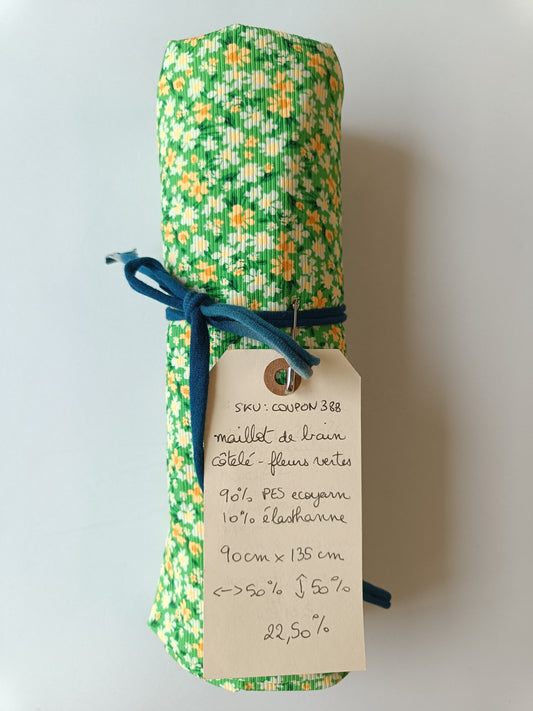 SKU: COUPON 388
maillot de bain
côtelé - fleurs vertes
90% PES ecoyarn
10% élasthanne
90cm x 135 cm
<-> 50% ↕ 50%
22,50%